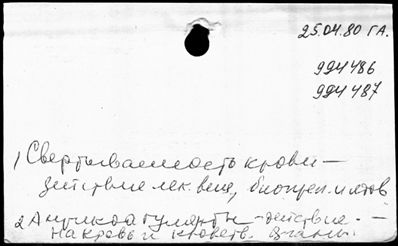 25.04.80 ГА.
994486
994487
1) Свертываемость крови —
действие лек. вещ, биопреп. и ядов
2 Антикоагулянты - действие. —
на кровь и кроветв. органы.